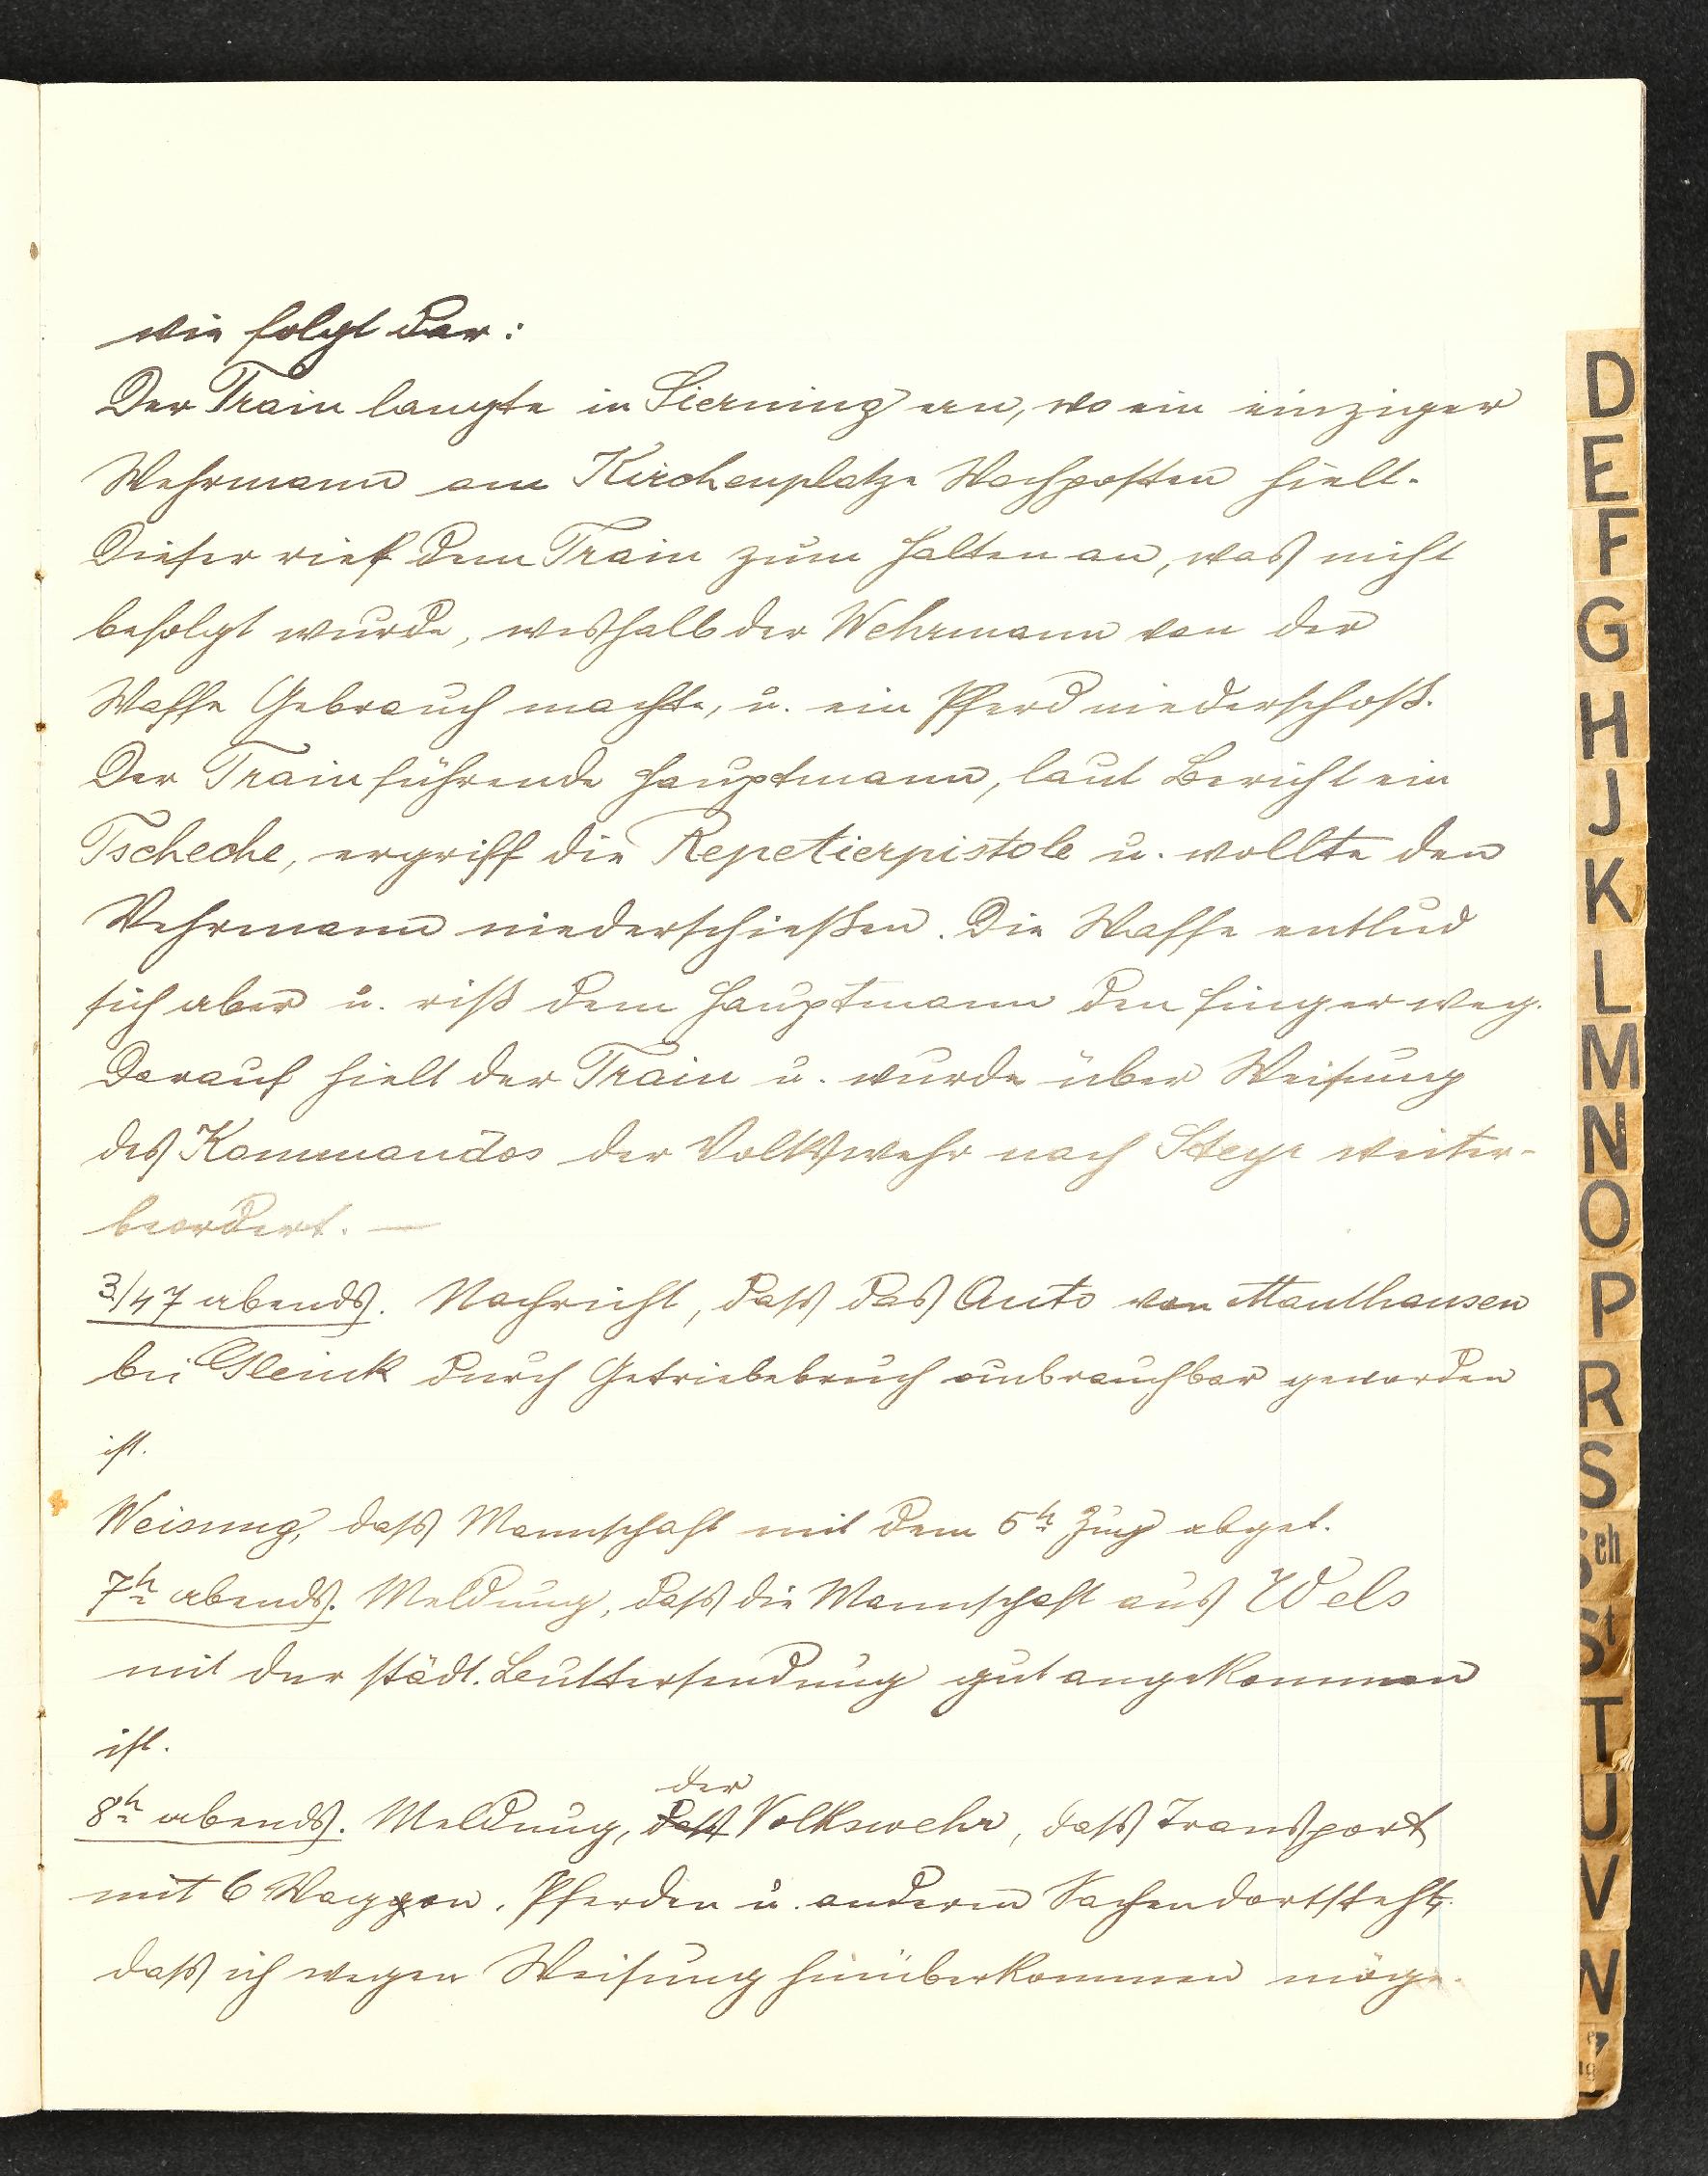 wie folgt dar:
Der Train langte in Sierning an, wo ein einziger
Wehrmann am Kirchenplatze Wachposten hielt.
Dieser rief dem Train zum Halten an, was nicht
befolgt wurde, weshalb der Wehrmann von der
Waffe Gebrauch machte, u. ein Pferd niederschoß.
Der Train führende Hauptmann, laut Bericht ein
Tscheche, ergriff die Repetierpistole u. wollte den
Wehrmann niederschießen. Die Waffe entlud
sich aber u. riß dem Hauptmann den Finger weg.
Darauf hielt der Train u. wurde über Weisung
des Kommandos der Volkswehr nach Steyr weiter-
beordert. —
3/47 abends. Nachricht, dass das Auto von Mauthausen
bei Gleink durch Getriebebruch unbrauchbar geworden
ist.
Weisung, dass Mannschaft mit dem 5h Zug abget.
7h abends. Meldung, dass die Mannschaft aus Wels
mit der städt. Buttersendung gut angekommen
ist.
8h abends. Meldung, dass der Volkswehr, dass Transport
mit 6 Waggon, Pferden u. anderen Sachen dort steht,
dass ich wegen Weisung hinüberkommen möge.
D
E
F
G
H
J
K
L
M
N
O
P
R
S
Sch
St
T
U
V
W